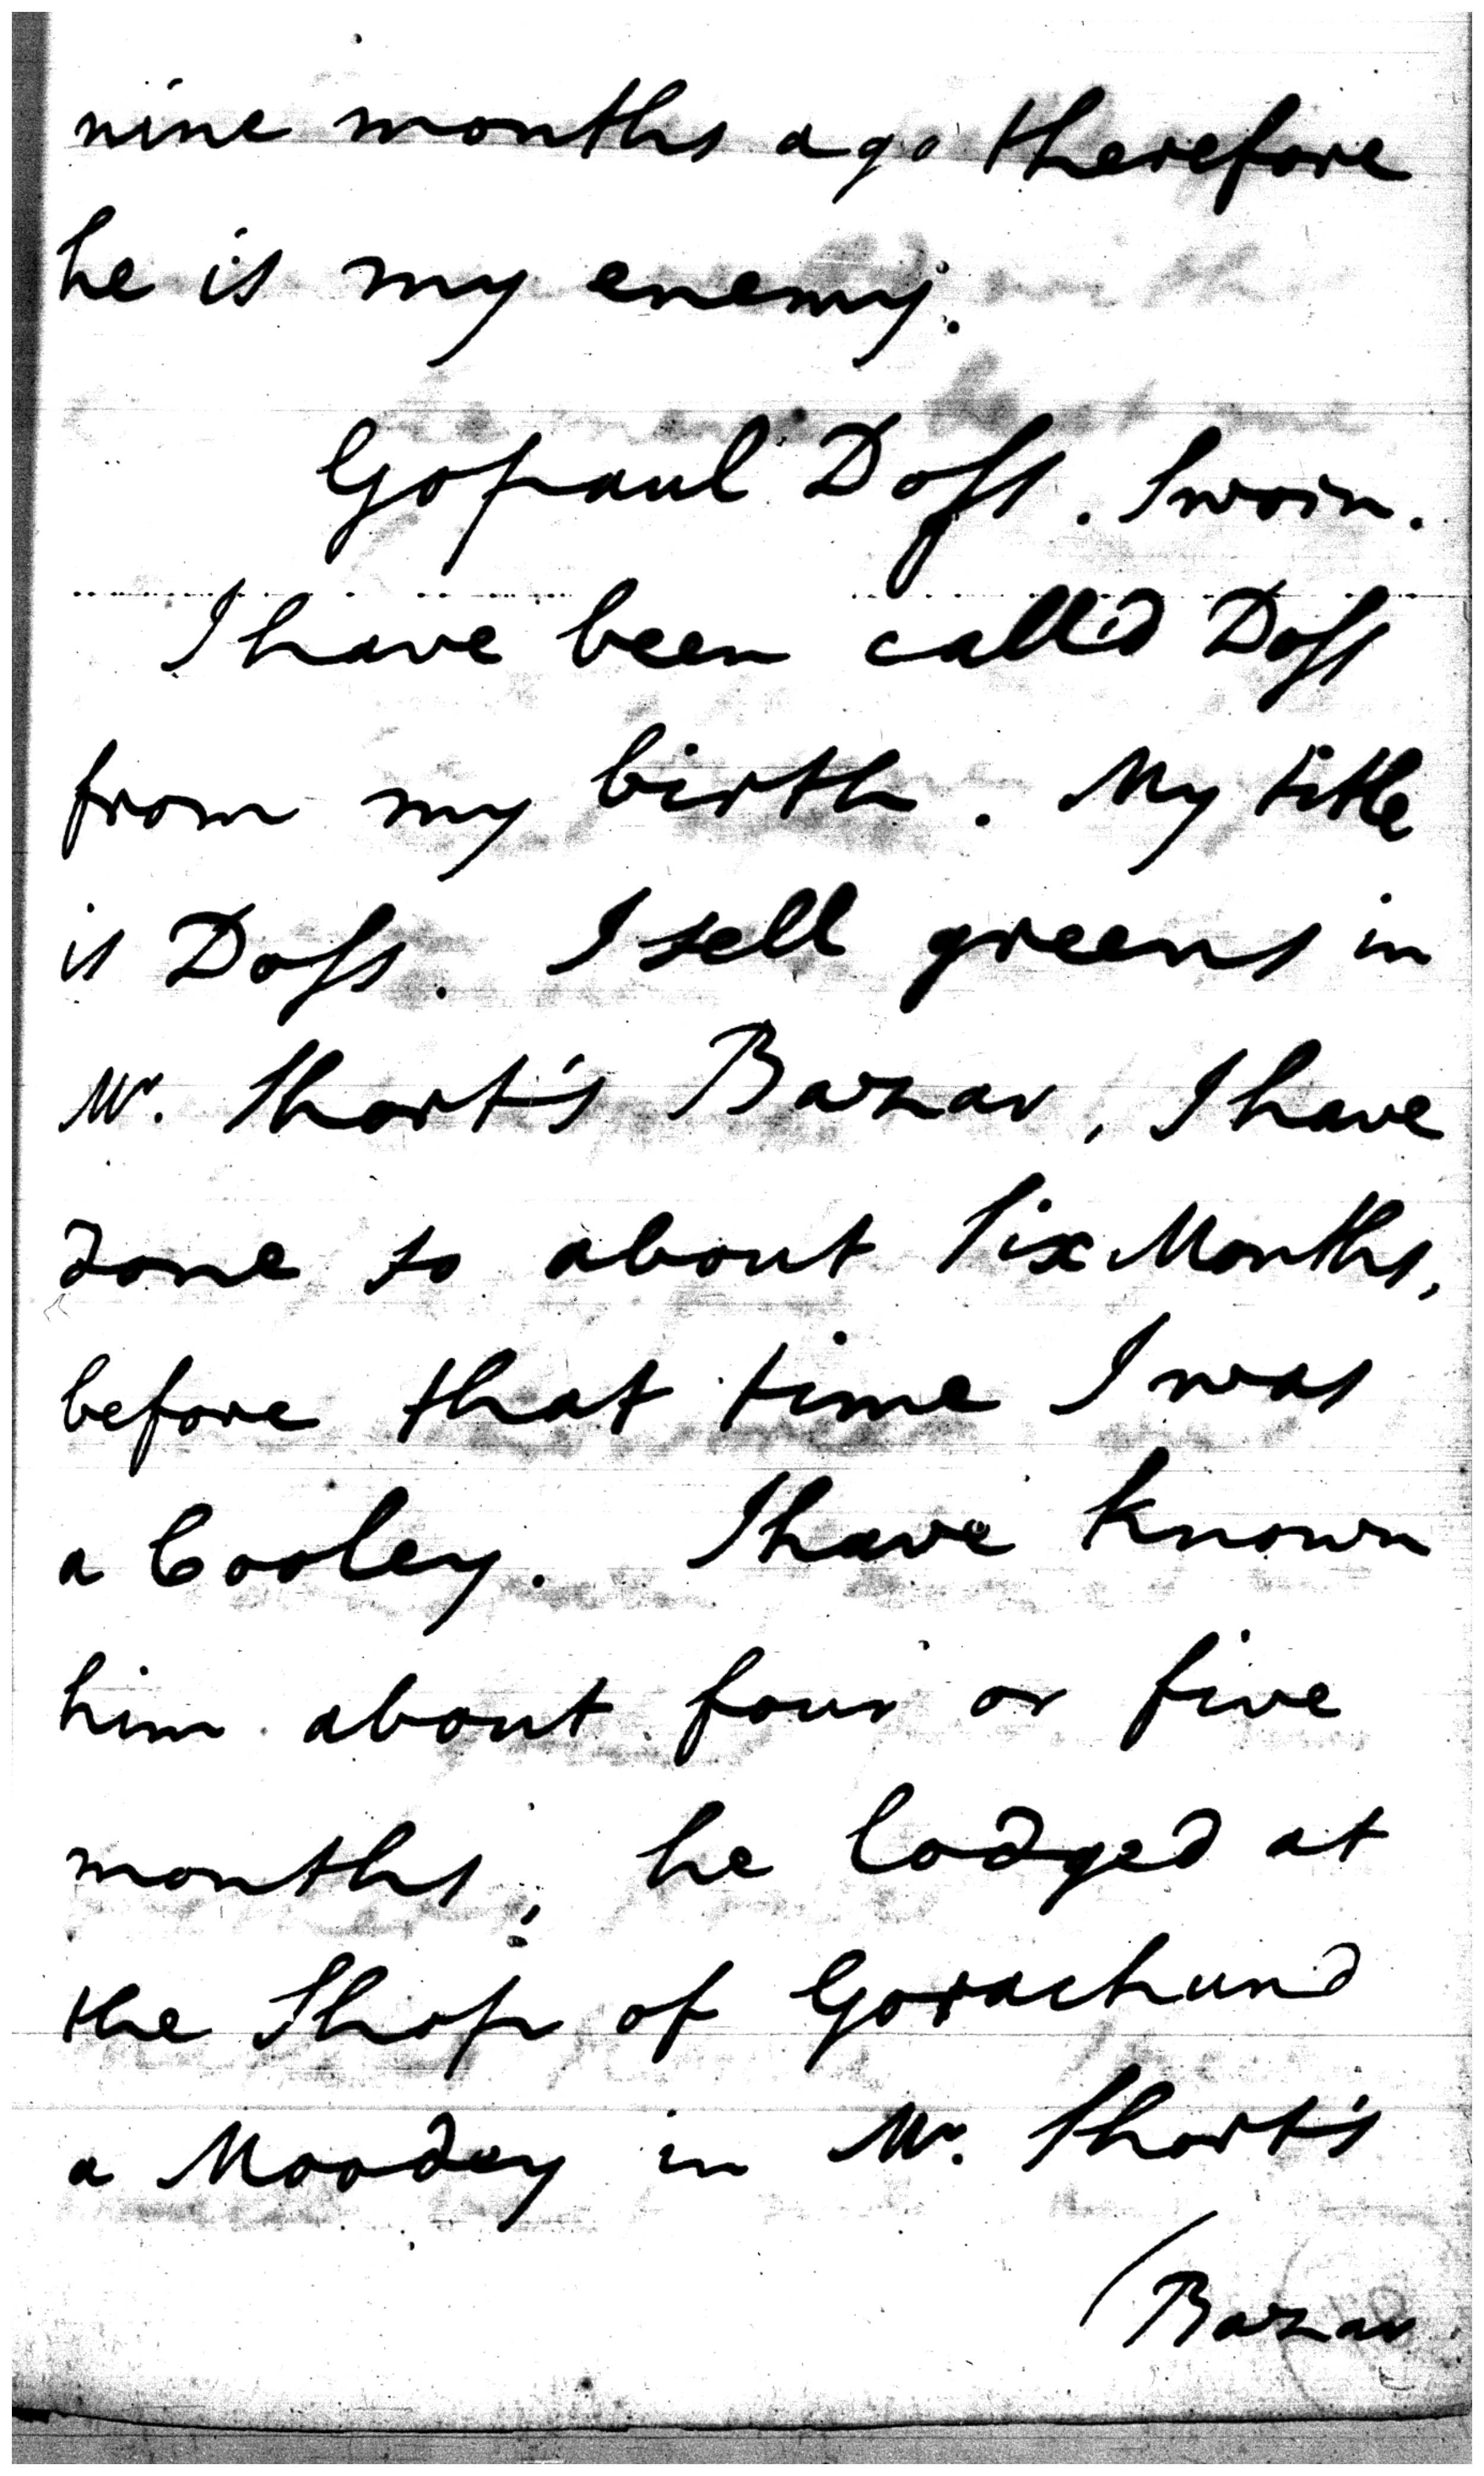 nine months ago therefore
he is my enemy.
Gopaul Doss. Sworn.
I have been call'd Doss
from my birth. My title
is Doss. I sell greens in
Mr. Short's Bazar, I have
done so about Six Months,
before that time I was
a Cooley. I have known
him about four or five
months, he lodged at
the Shop of Gorachund
a Moodey in Mr. Short's
(Bazar